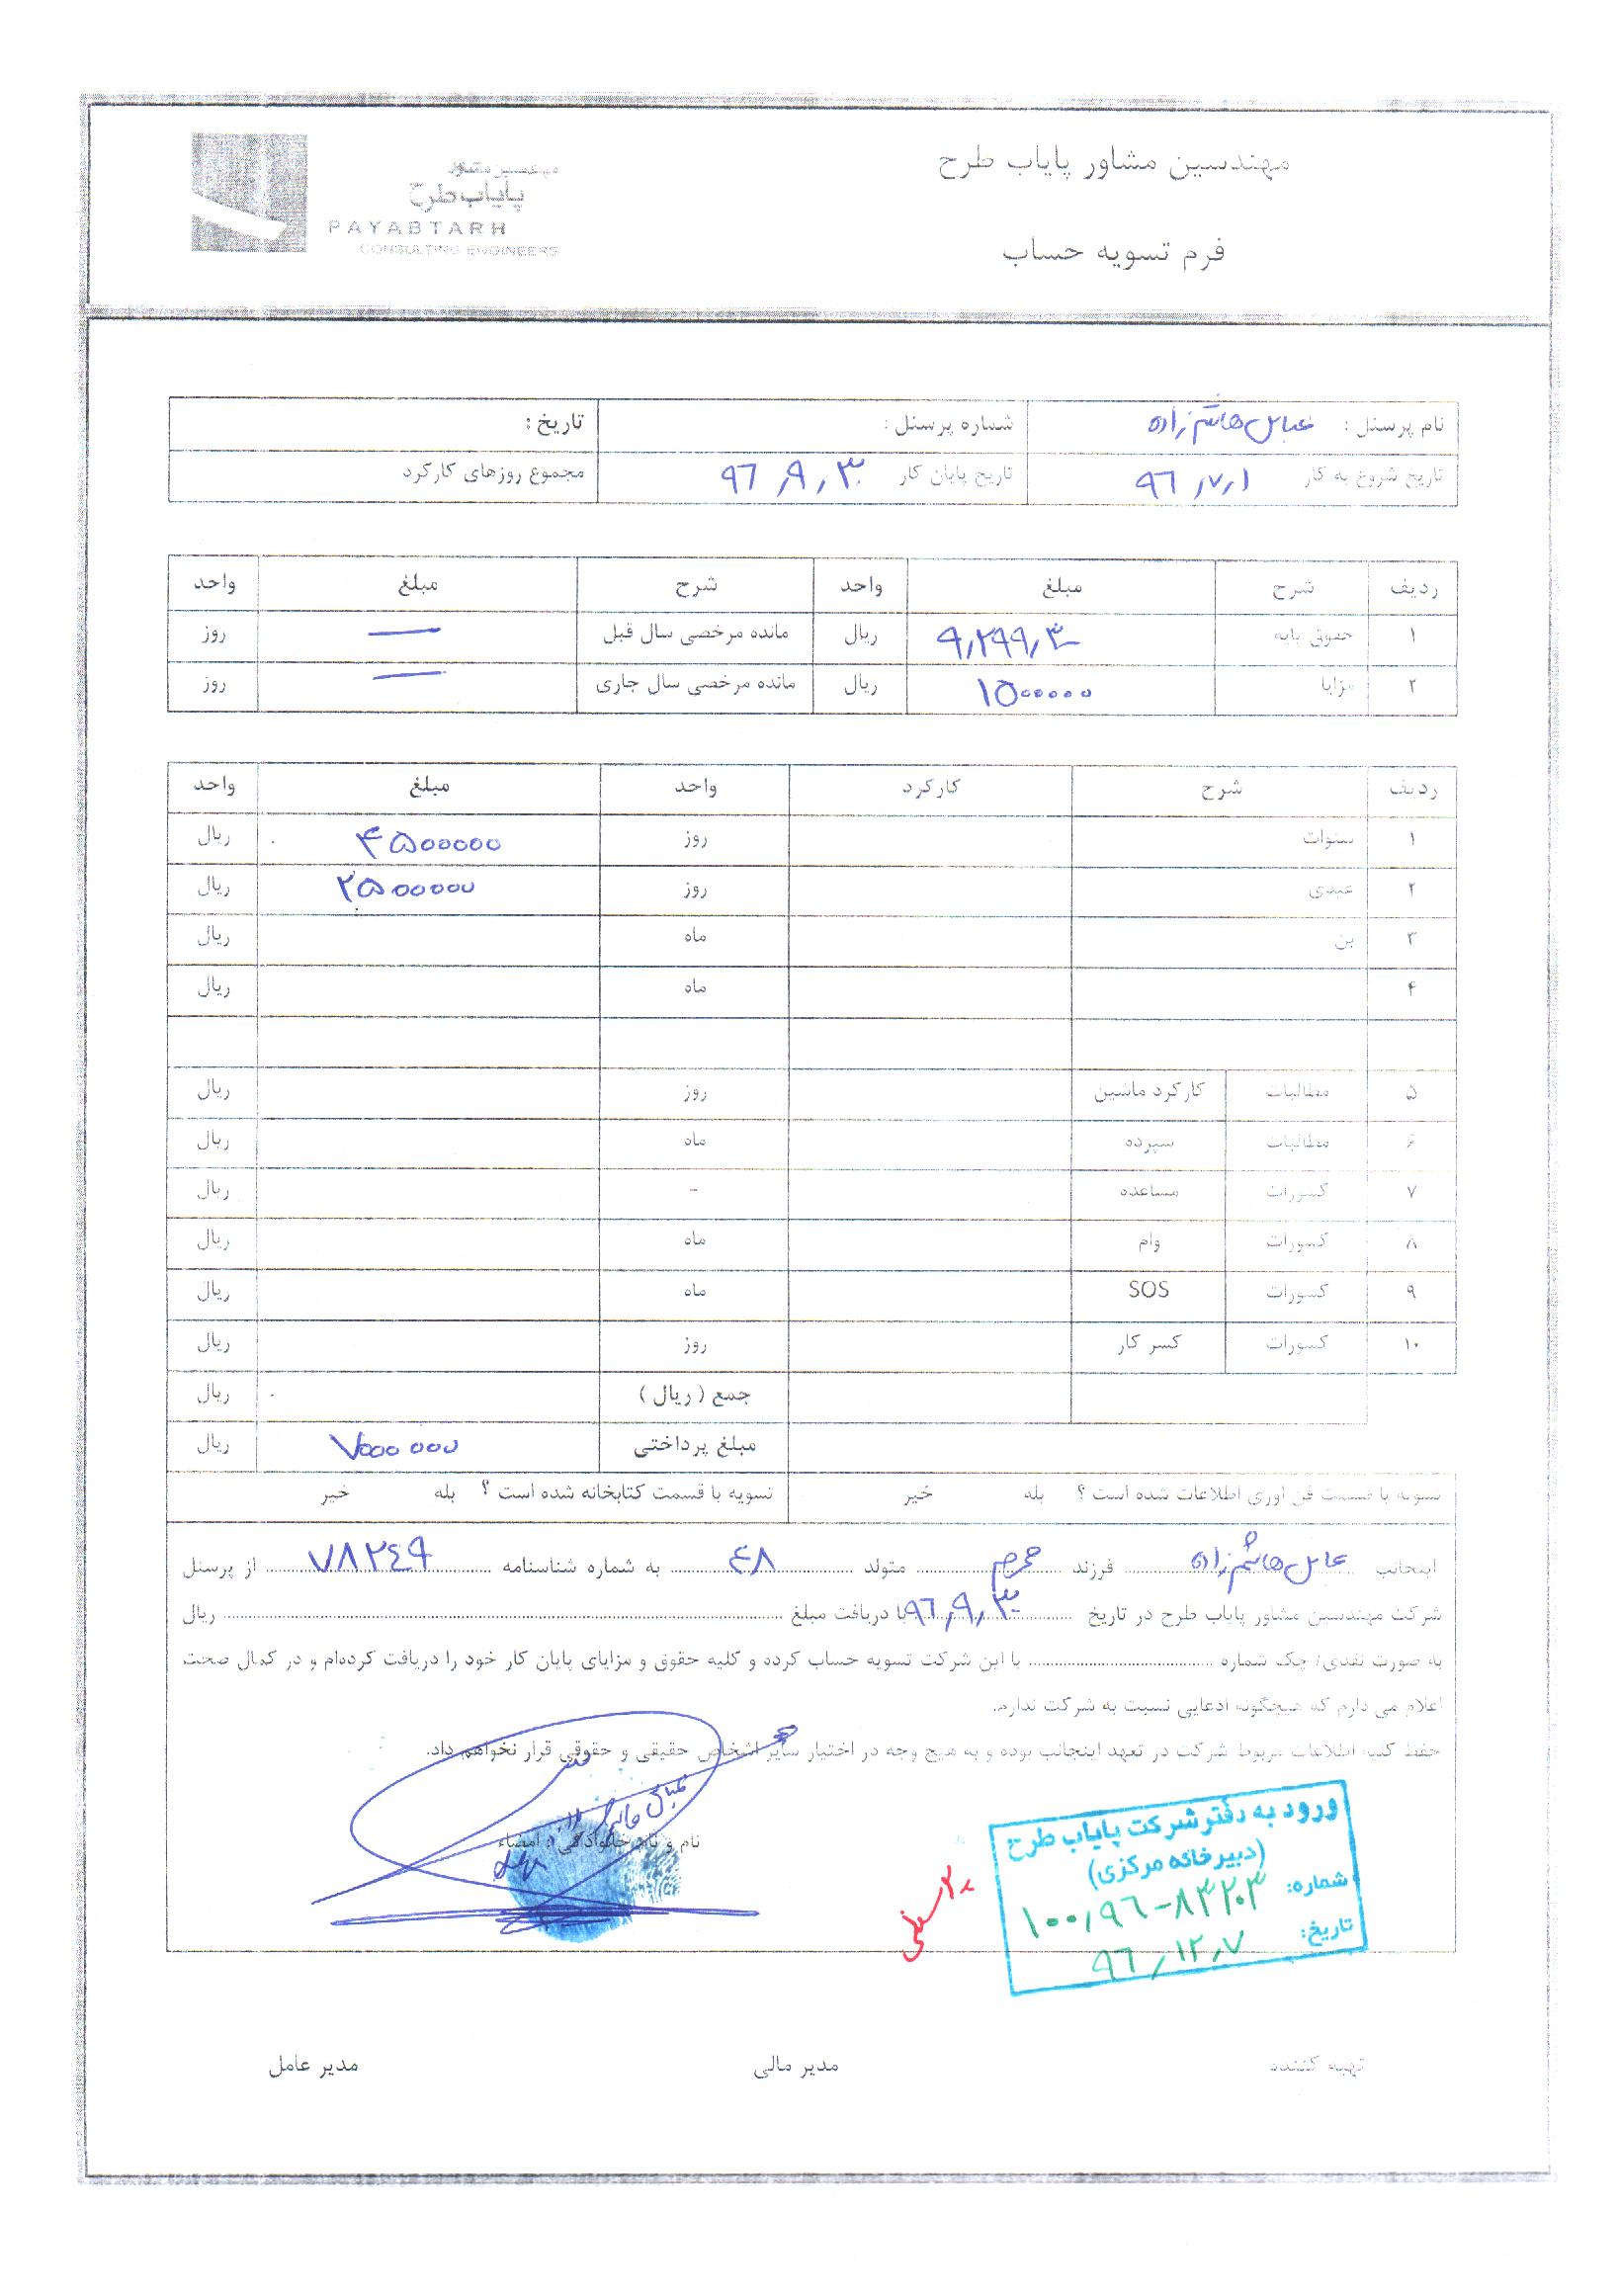 مهندسین مشاور پایاب طرح
مهندسین مشاور
پایاب طرح
PAYABTARH
CONSULTING ENGINEERS
فرم تسویه حساب
نام پرسنل : عباس هاشم زاده شماره پرسنل : تاریخ :
تاریخ شروع به کار ۹۶/۷/۱ تاریخ پایان کار ۹۶/۹/۳۰ مجموع روزهای کارکرد
ردیف شرح مبلغ واحد شرح مبلغ واحد
۱ حقوق پایه ریال مانده مرخصی سال قبل — روز
۲ مزایا ۱۵۰۰۰۰۰ ریال مانده مرخصی سال جاری — روز
ردیف شرح کارکرد واحد مبلغ واحد
۱ سنوات روز ۴۵۰۰۰۰۰ ریال
۲ عیدی روز ۲۵۰۰۰۰۰ ریال
۳ بن ماه ریال
۴ ماه ریال
۵ مطالبات کارکرد ماشین روز ریال
۶ مطالبات سپرده ماه ریال
۷ کسورات مساعده - ریال
۸ کسورات وام ماه ریال
۹ کسورات SOS ماه ریال
۱۰ کسورات کسر کار روز ریال
جمع ( ریال ) ریال
مبلغ پرداختی ۷۰۰۰۰۰۰ ریال
تسویه با قسمت فن اوری اطلاعات شده است ؟ بله خیر تسویه با قسمت کتابخانه شده است ؟ بله خیر
اینجانب عباس هاشم زاده فرزند متولد ۴۸ به شماره شناسنامه ۷۸۲۴۹ از پرسنل
شرکت مهندسین مشاور پایاب طرح در تاریخ ۹۶/۹/۳۰ با دریافت مبلغ ریال
به صورت نقدی/ چک شماره با این شرکت تسویه حساب کرده و کلیه حقوق و مزایای پایان کار خود را دریافت کرده‌ام و در کمال صحت
اعلام می دارم که هیچگونه ادعایی نسبت به شرکت ندارم.
حفظ کلیه اطلاعات مربوط شرکت در تعهد اینجانب بوده و به هیچ وجه در اختیار سایر اشخاص حقیقی و حقوقی قرار نخواهم داد.
نام و نام خانوادگی : امضاء
ورود به دفتر شرکت پایاب طرح
(دبیرخانه مرکزی)
شماره: ۱۰۰/۹۶-۸۳۲۰۳
تاریخ: ۹۶/۱۲/۷
تهیه کننده مدیر مالی مدیر عامل